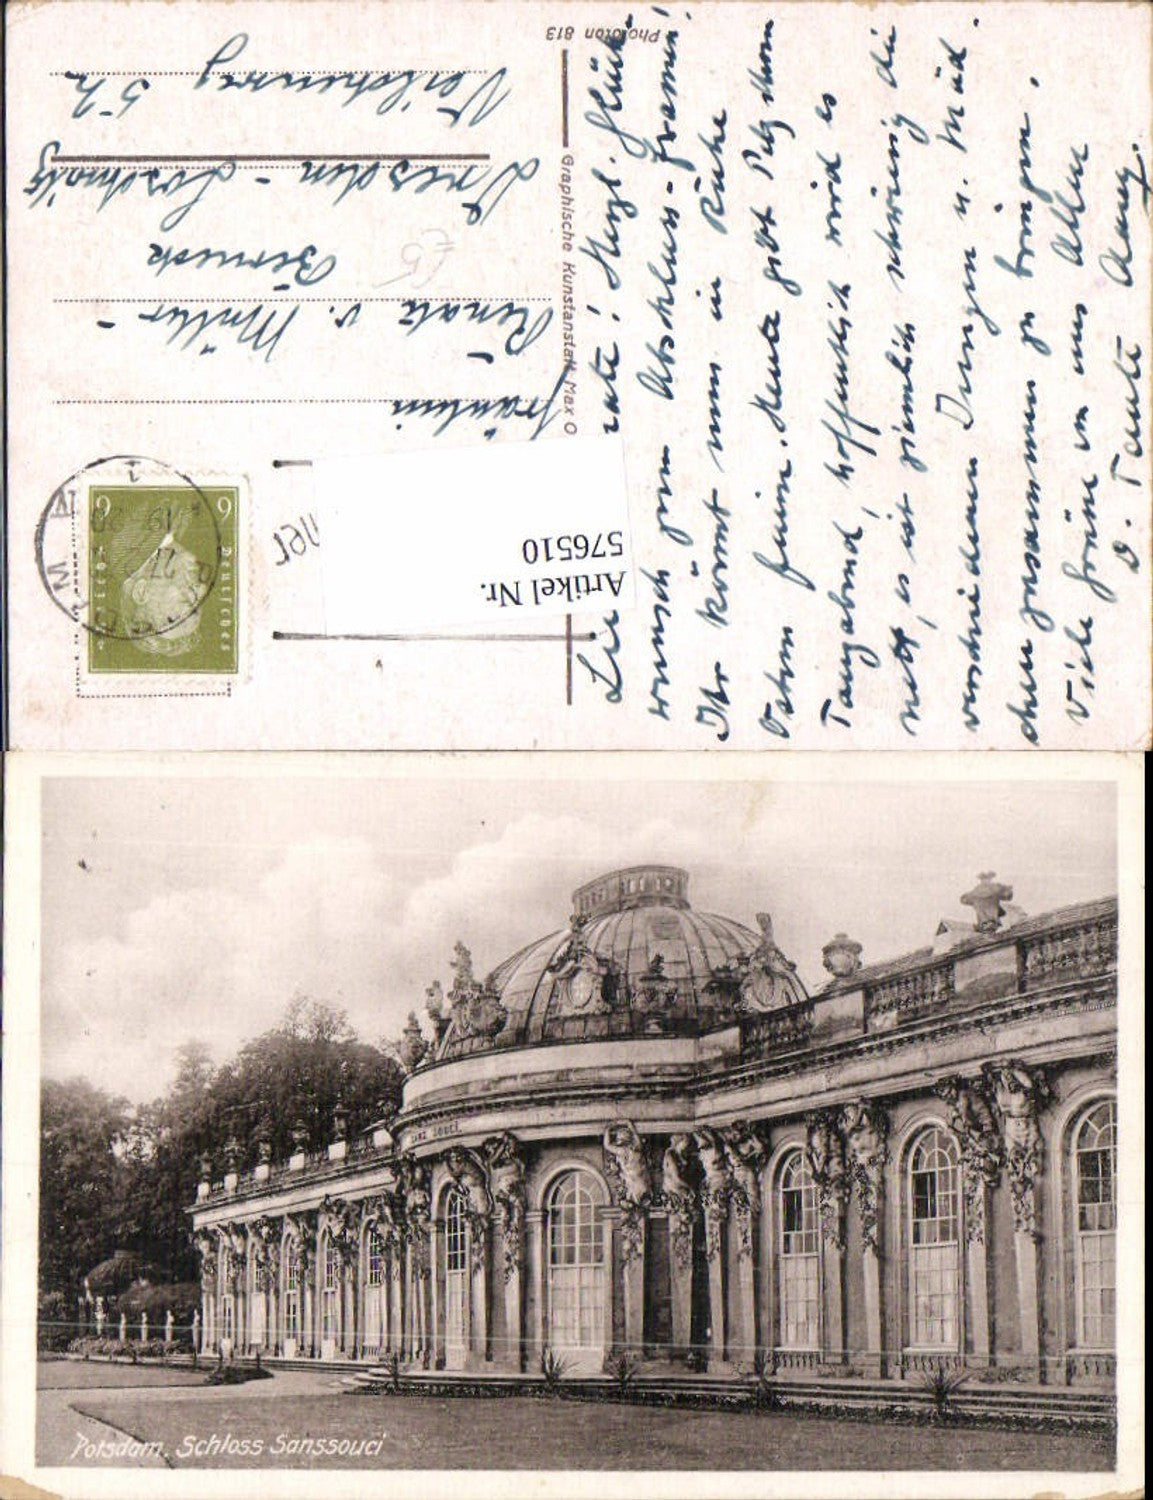 Liebe Renate! Herzl. Glück-
wunsch zum Abschluss-Examen!
Ihr könnt nun in Ruhe
Ostern feiern. Heute gibt
Tanzabend, hoffentlich wird es
nett, es ist ziemlich schwierig die
verschiedenen Jungen u. Mäd.
chen zusammen zu bringen.
Viele Grüsse von uns Allen
D. Tante Anny.
Phototon 813
Graphische Kunstanstalt Max O
Fräulein
Renate v. Müller-
Berneck
Dresden-Loschwitz
Veilchenweg 5b
Deutsches
6 6
Artikel Nr.
576510
SANS SOUCI.
Potsdam, Schloss Sanssouci